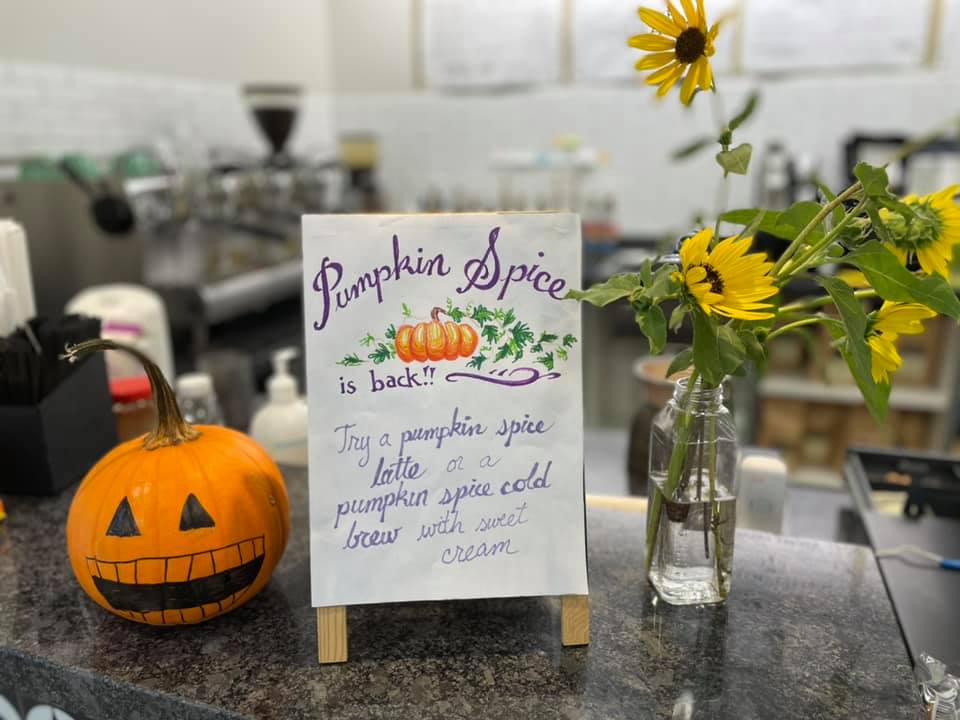 Pumpkin Spice
is back!!
Try a pumpkin spice
latte or a
pumpkin spice cold
brew with sweet
cream